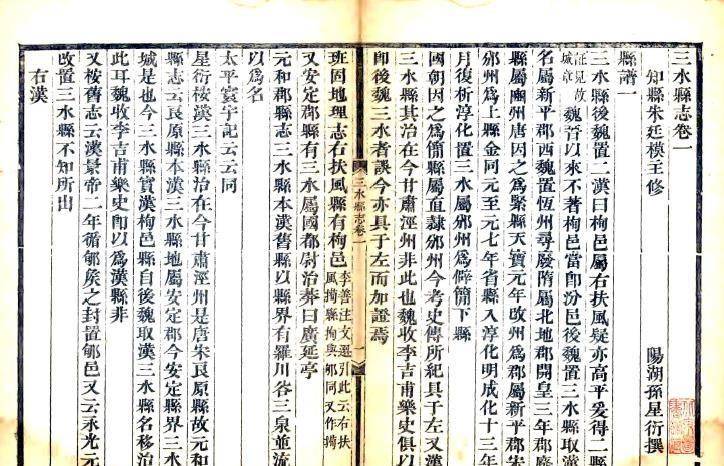 三水縣志卷一
知縣朱廷模主修　陽湖孫星衍撰
縣譜一
三水縣後魏置二漢曰栒邑屬右扶風疑亦高平爰得二縣
証見故
城章
魏晉以來不著栒邑當卽汾邑後魏置三水縣取漢
名屬新平郡西魏置恆州尋廢隋屬北地郡開皇三年郡廢
縣屬豳州唐因之爲緊縣天寶元年改州爲郡屬新平郡宋
邠州爲上縣金同元至元七年省縣入淳化明成化十三年
月復析淳化置三水縣屬邠州爲僻簡下縣
國朝因之爲簡縣屬直隷邠州今考史傳所紀具于左而又漢
三水縣其治在今甘肅涇州非此也魏收李吉甫樂史俱以
卽後魏三水者誤今亦具于左而加證焉
三水縣志卷一　一
班固地理志右扶風縣有栒邑
李善注文選引此云右扶
風栒縣栒與郇同又作
又安定郡縣有三水屬國都尉治莽曰廣延亭
元和郡縣志三水縣本漢舊縣以縣界有羅川谷三泉並流
以爲名
太平寰宇記云云同
星衍桉漢三水縣治在今甘肅涇州是唐朱良原縣故元和
縣志云良原縣本漢三水縣地屬安定郡今安定縣界三水
城是也今三水縣實漢栒邑縣自後魏取漢三水縣名移治
此耳魏收李吉甫樂史卽以爲漢縣非
又桉舊志云漢景帝二年循郇矦之封置郇邑又云永光元
改置三水縣不知所出
右漢